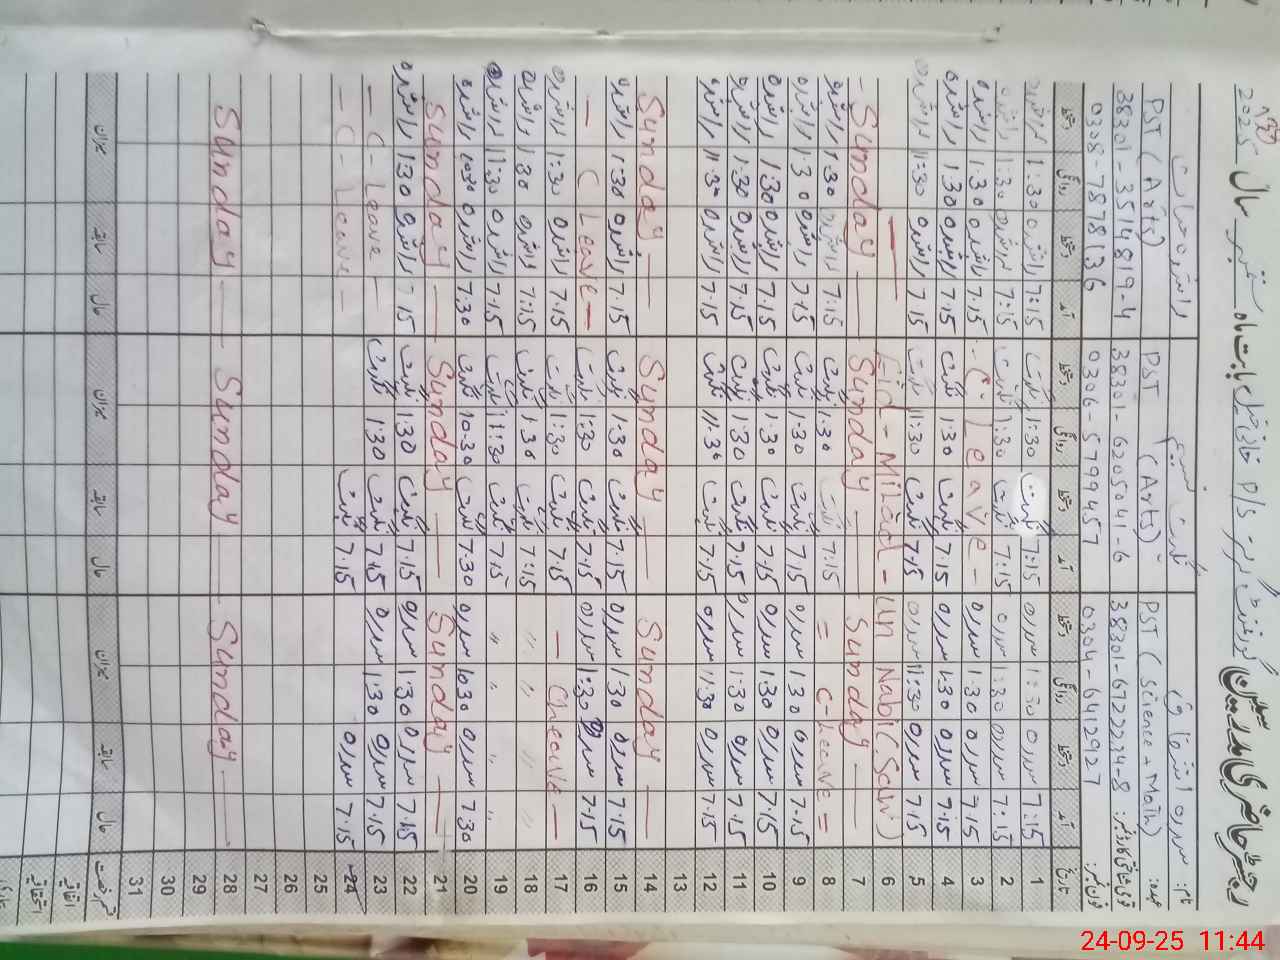 رجسٹر حاضری مدرسین گورنمنٹ گرلز P/S بابت ماہ ستمبر سال 2025
نام: سدرہ
عہدہ: PST (Science + Math)
قومی شناختی کارڈ نمبر: 38301-6722234-8
فون نمبر: 0304-6412927
PST (Arts)
38301-6205041-6
0306-5799457
راشدہ
PST (Arts)
38301-3514819-4
0308-7878136
تاریخ آمد دستخط روانگی دستخط آمد دستخط روانگی دستخط آمد دستخط روانگی دستخط
1 7:15 سدرہ 1:30 سدرہ 7:15 1:30 7:15 راشدہ 1:30 راشدہ
2 7:15 سدرہ 1:30 سدرہ 7:15 1:30 7:15 راشدہ 1:30 راشدہ
3 7:15 سدرہ 1:30 سدرہ - C. leave - 7.15 راشدہ 1:30 راشدہ
4 7.15 سدرہ 1:30 سدرہ 7.15 1:30 7.15 راشدہ 1:30 راشدہ
5 7.15 سدرہ 11:30 سدرہ 7.15 11:30 7.15 راشدہ 11:30 راشدہ
6 Eid-Milad-un Nabi (Saw)
7 Sunday Sunday Sunday
8 = C-leave = 7:15 1:30 7:15 راشدہ 1:30 راشدہ
9 7.15 سدرہ 1:30 سدرہ 7.15 1:30 7.15 راشدہ 1:30 راشدہ
10 7.15 سدرہ 1:30 سدرہ 7.15 1:30 7.15 راشدہ 1:30 راشدہ
11 7.15 سدرہ 1:30 سدرہ 7.15 1:30 7.15 راشدہ 1:30 راشدہ
12 7.15 سدرہ 11:30 سدرہ 7.15 11:30 7.15 راشدہ 11:30 راشدہ
13
14 Sunday Sunday Sunday
15 7.15 سدرہ 1:30 سدرہ 7.15 1:30 7.15 راشدہ 1:30 راشدہ
16 7.15 سدرہ 1:30 سدرہ 7.15 1:30 C Leave
17 C Leave 7.15 1:30 7.15 راشدہ 1:30 راشدہ
18 " " " 7:15 1:30 7:15 راشدہ 1:30 راشدہ
19 " " " 7.15 11:30 7.15 راشدہ 11:30 راشدہ
20 7.30 سدرہ 10:30 سدرہ 7.30 10:30 7.30 راشدہ 10:30 راشدہ
21 Sunday Sunday Sunday
22 7.15 سدرہ 1:30 سدرہ 7.15 1:30 7.15 راشدہ 1:30 راشدہ
23 7.15 سدرہ 1:30 سدرہ 7.15 1:30 - C-Leave -
24 7.15 سدرہ 7.15 - C- Leave -
25
26
27
28 Sunday Sunday Sunday
29
30
31
حال سابقہ میزان حال سابقہ میزان حال سابقہ میزان
اتفاقیہ
استحقاقیہ
24-09-25 11:44